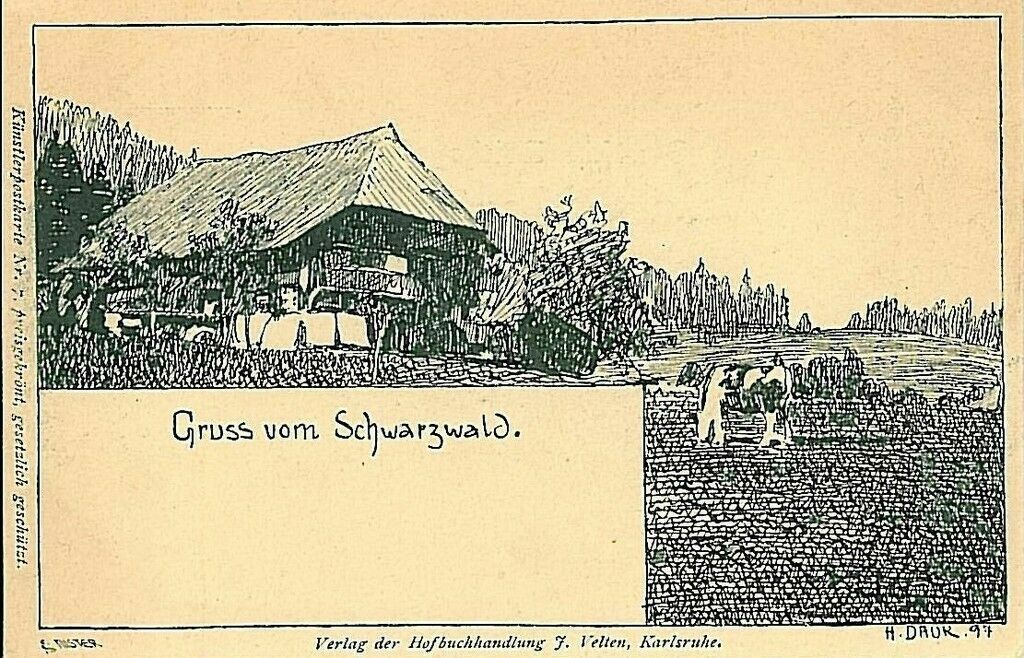 Künstlerpostkarte Nr. 7, preisgekrönt, gesetzlich geschützt.
Gruss vom Schwarzwald.
H. DAUR. 97
Verlag der Hofbuchhandlung J. Velten, Karlsruhe.